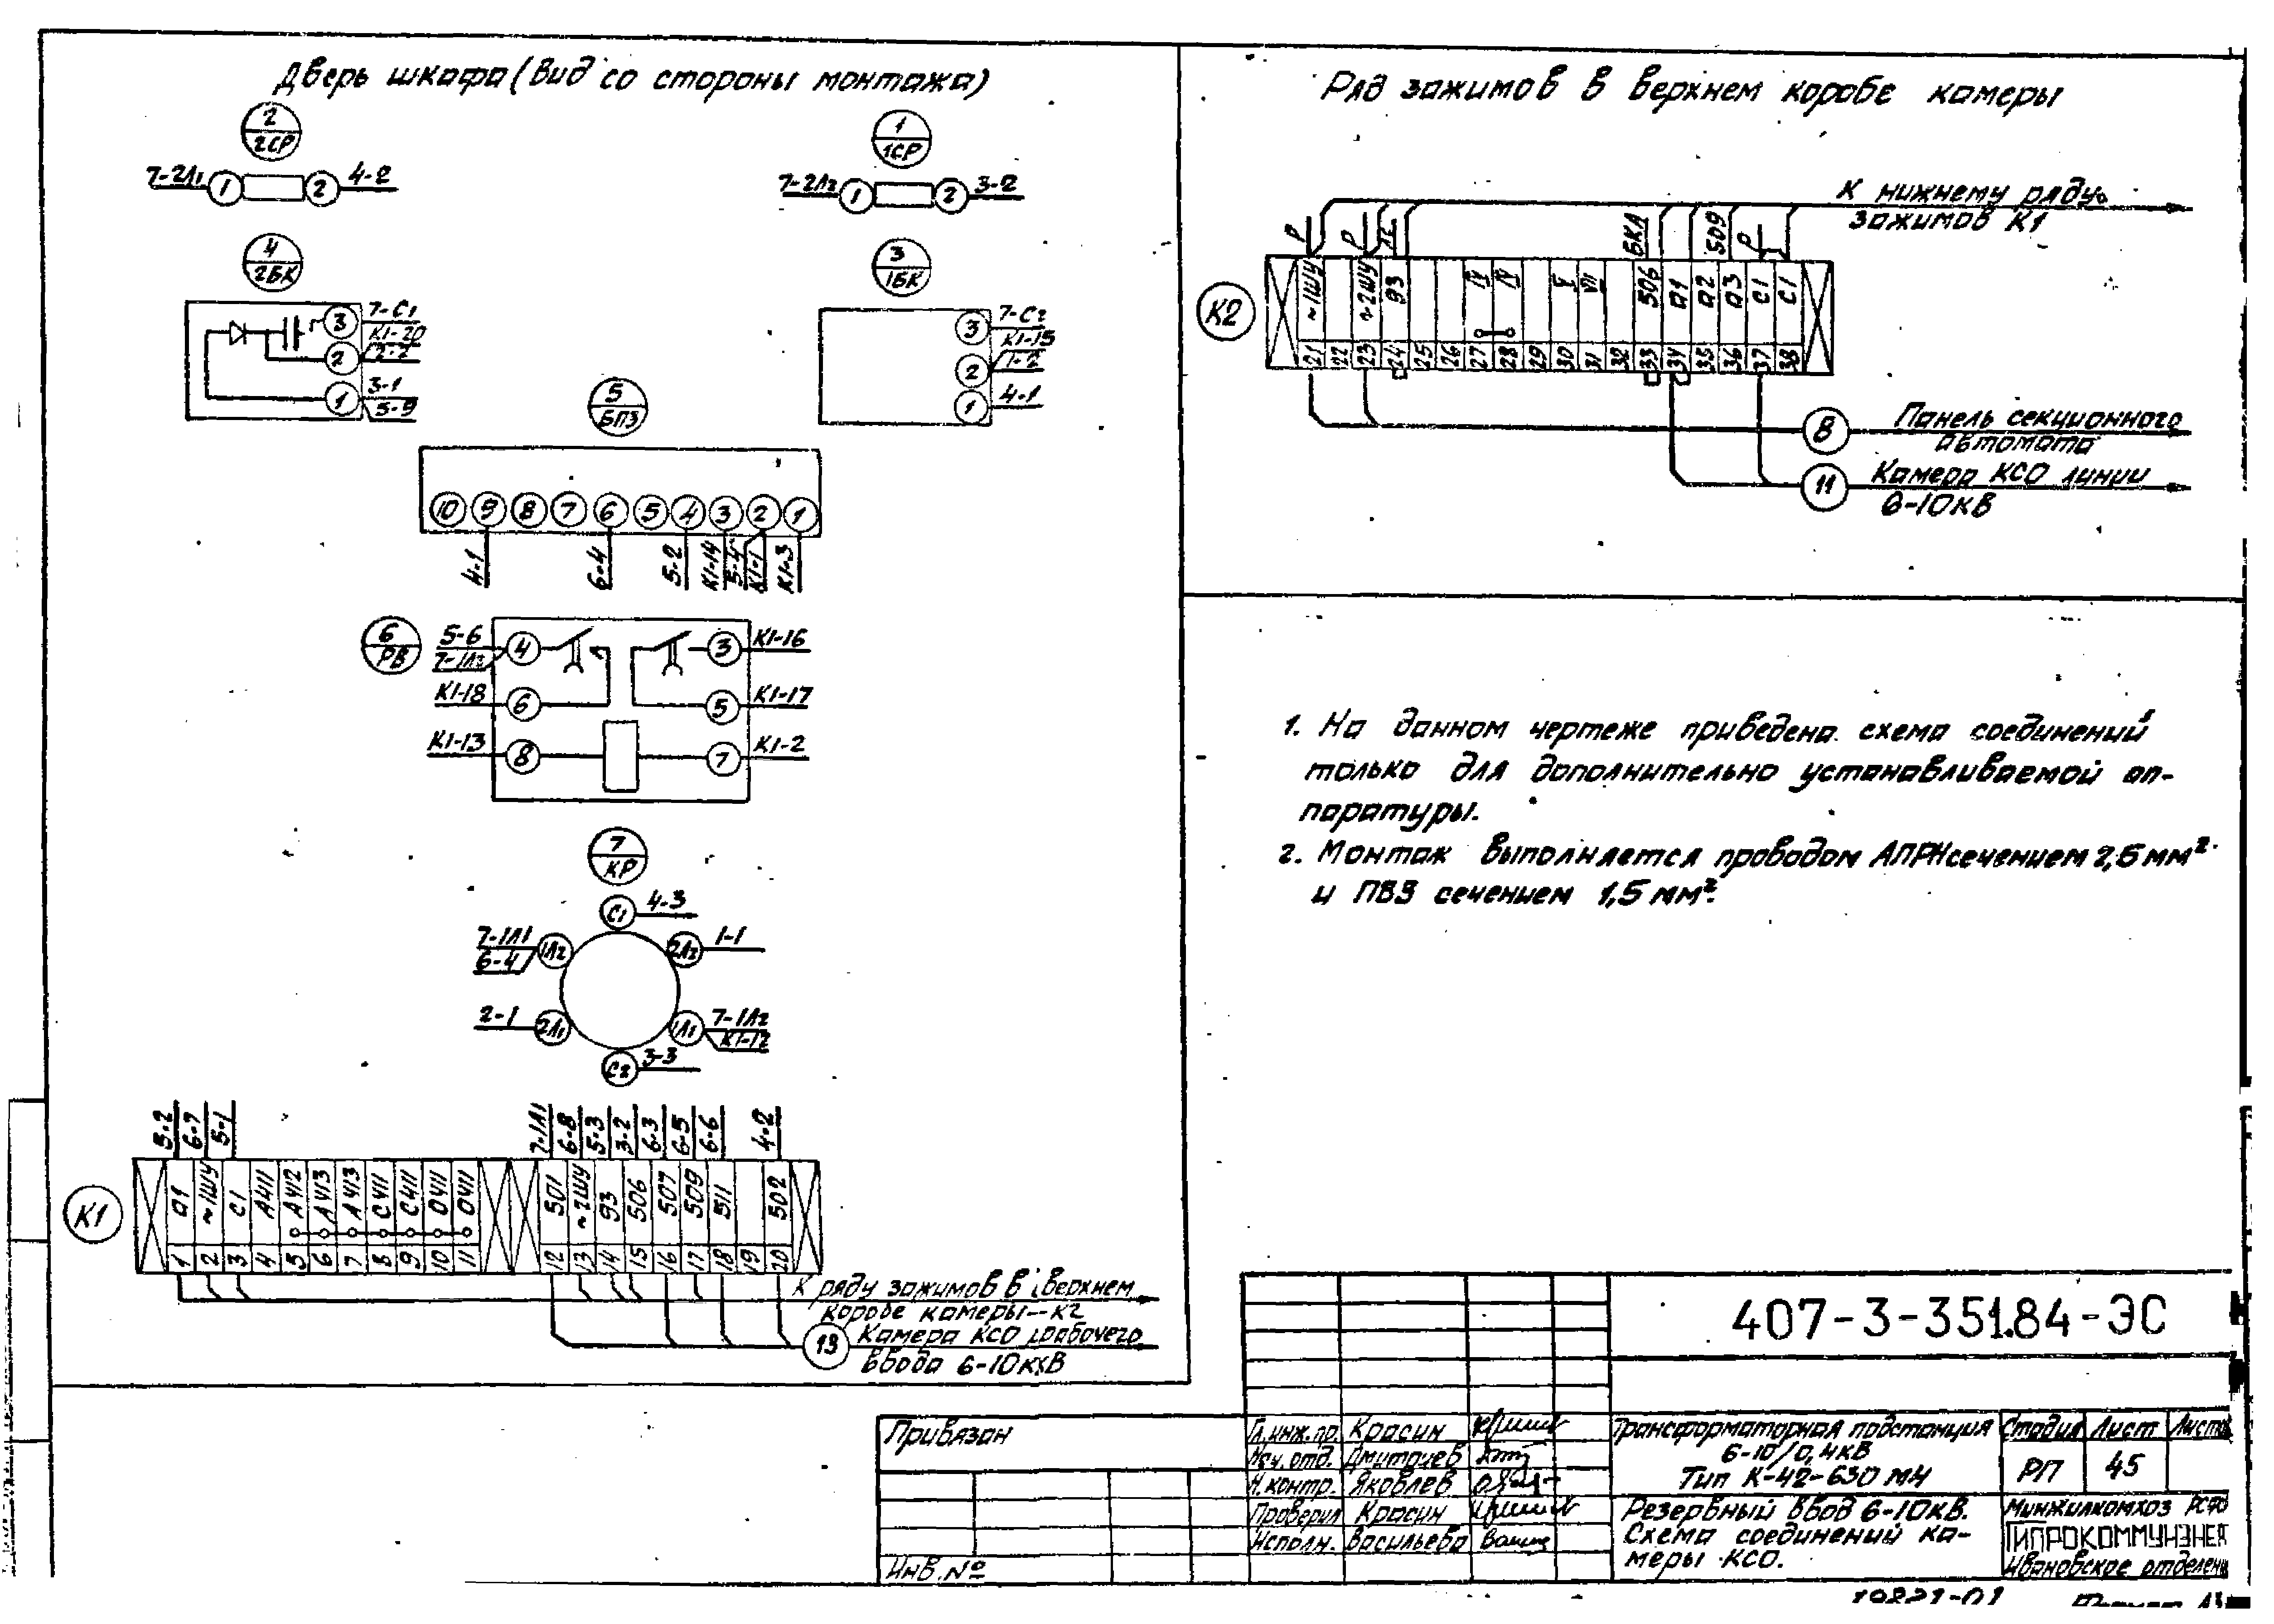 Дверь шкафа (вид со стороны монтажа)
2
2СР
7-2Л1 1 2 4-2
1
1СР
7-2Л2 1 2 3-2
4
2БК
3 7-С1
К1-20
2 2-2
1 3-1
5-9
3
1БК
3 7-С2
К1-15
2 1-2
1 4-1
5
БПЗ
10 9 8 7 6 5 4 3 2 1
4-1 6-4 5-2 К1-14 5-4 К1-1 К1-3
6
РВ
5-6 4 3 К1-16
7-1Л2
К1-18 6 5 К1-17
К1-13 8 7 К1-2
7
КР
С1 4-3
7-1Л1 1Л2 2Л2 1-1
6-4
2-1 2Л1 1Л1 7-1Л2
К1-12
С2 3-3
5-2 6-7 5-1 7-1Л1 6-8 5-3 3-2 6-3 6-5 6-6 4-2
К1
а1 ~1ШУ С1 А411 А412 А413 А413 С411 С411 0411 0411 501 ~2ШУ 93 506 507 509 511 502
1 2 3 4 5 6 7 8 9 10 11 12 13 14 15 16 17 18 19 20
К ряду зажимов в верхнем
коробе камеры-К2
13 Камера КСО рабочего
ввода 6-10кВ
Ряд зажимов в верхнем коробе камеры
К нижнему ряду
зажимов К1
Р Р ЛС БКА 509 Р
К2
~1ШУ ~2ШУ 93 IV IV V VII 506 а1 а2 а3 С1 С1
21 22 23 24 25 26 27 28 29 30 31 32 33 34 35 36 37 38
8 Панель секционного
автомата
11 Камера КСО линии
6-10кВ
1. На данном чертеже приведена схема соединений
только для дополнительно устанавливаемой ап-
паратуры.
2. Монтаж выполняется проводом АПРН сечением 2,5 мм²
и ПВ3 сечением 1,5 мм².
407-3-351.84-ЭС
Привязан
Инв. №
Гл.инж.пр. Красин
Нач. отд. Дмитриев
Н.контр. Яковлев
Проверил Красин
Исполн. Васильева
Трансформаторная подстанция
6-10/0,4кВ
Тип К-42-630 М4
Стадия Лист Листов
РП 45
Резервный ввод 6-10кВ.
Схема соединений ка-
меры КСО.
Минжилкомхоз РСФ
ГИПРОКОММУНЭНЕ
Ивановское отделени
19221-01
Формат А3